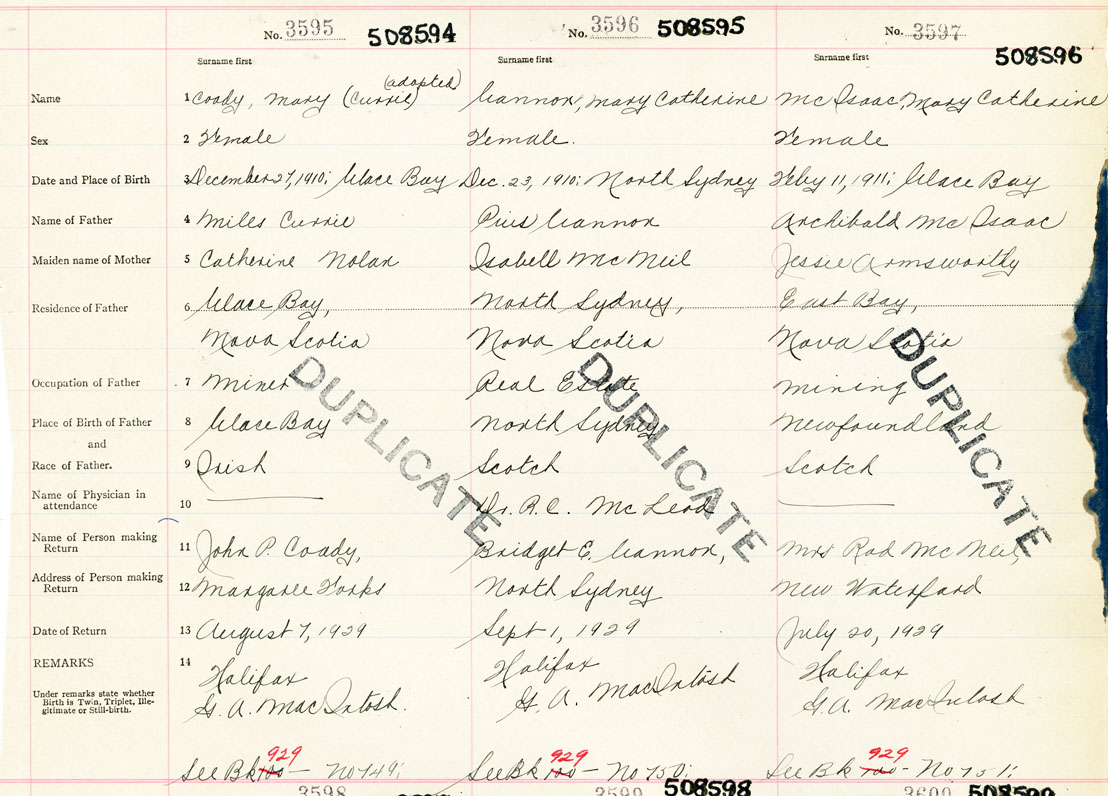 No. 3595 508594 No. 3596 508595 No. 3597 508596
Surname first Surname first Surname first
Name 1 Coady, Mary (Currie) (adopted) Gannon, Mary Catherine Mc Isaac, Mary Catherine
Sex 2 Female Female. Female
Date and Place of Birth 3 December 27, 1910; Glace Bay Dec. 23, 1910; North Sydney Feby 11, 1911; Glace Bay
Name of Father 4 Miles Currie Pius Gannon Archibald Mc Isaac
Maiden name of Mother 5 Catherine Nolan Isabell Mc Neil Jessie Armsworthy
Residence of Father 6 Glace Bay, North Sydney, East Bay,
Nova Scotia Nova Scotia Nova Scotia
Occupation of Father 7 Miner Real Estate Mining
Place of Birth of Father 8 Glace Bay North Sydney Newfoundland
and
Race of Father. 9 Irish Scotch Scotch
Name of Physician in
attendance 10 Dr. R.C. McLeod
Name of Person making
Return 11 John P. Coady, Bridget E. Gannon, Mrs Rod McNeil,
Address of Person making
Return 12 Margaree Forks North Sydney New Waterford
Date of Return 13 August 7, 1929 Sept 1, 1929 July 20, 1929
REMARKS 14 Halifax Halifax Halifax
Under remarks state whether
Birth is Twin, Triplet, Ille-
gitimate or Still-birth.
G. A. MacIntosh. G. A. MacIntosh G. A. MacIntosh
DUPLICATE DUPLICATE DUPLICATE
929 929 929
See Bk 100 — No 749; See Bk 100 — No 750; See Bk 100 - No 751;
3598 3599 508598 3600